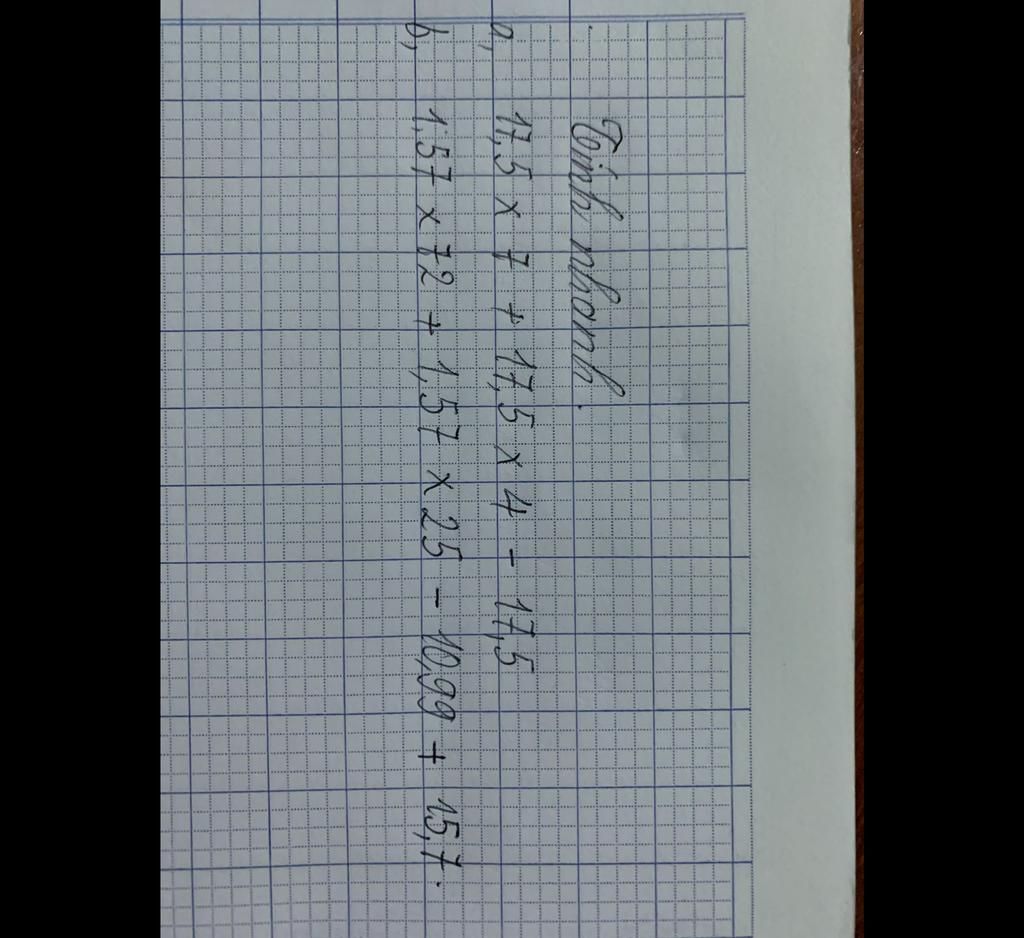 Tính nhanh.
a, 17,5 x 7 + 17,5 x 4 - 17,5
b, 1,57 x 72 + 1,57 x 25 - 10,99 + 15,7.